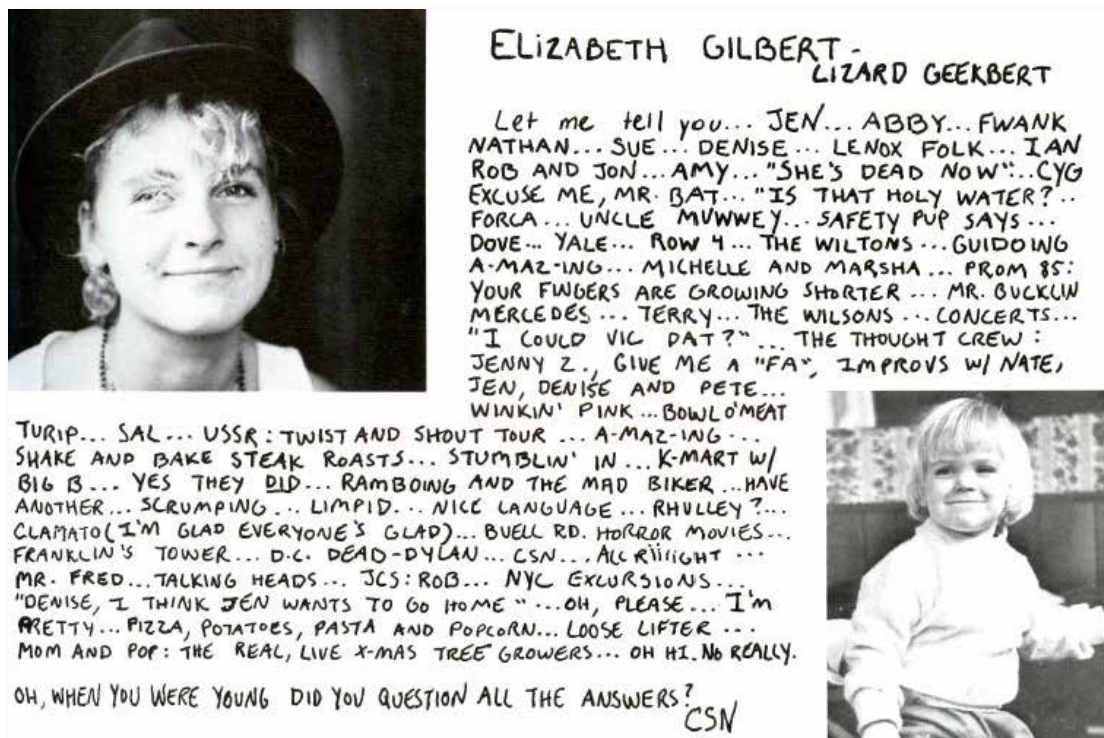 ELIZABETH GILBERT-
LIZARD GEEKBERT
Let me tell you... JEN... ABBY... FWANK
NATHAN... SUE... DENISE... LENOX FOLK... IAN
ROB AND JON... AMY... "SHE'S DEAD NOW"...CYG
EXCUSE ME, MR. BAT... "IS THAT HOLY WATER?..
FORCA... UNCLE MUWWEY... SAFETY PUP SAYS...
DOVE... YALE... ROW 4... THE WILTONS...GUIDOING
A-MAZ-ING... MICHELLE AND MARSHA... PROM 85:
YOUR FINGERS ARE GROWING SHORTER... MR. BUCKLIN
MERCEDES... TERRY... THE WILSONS... CONCERTS...
"I COULD VIC DAT?"... THE THOUGHT CREW:
JENNY Z., GIVE ME A "FA", IMPROVS W/ NATE,
JEN, DENISE AND PETE...
WINKIN' PINK...BOWL O'MEAT
TURIP... SAL... USSR: TWIST AND SHOUT TOUR... A-MAZ-ING...
SHAKE AND BAKE STEAK ROASTS... STUMBLIN' IN... K-MART W/
BIG B... YES THEY DID... RAMBOING AND THE MAD BIKER...HAVE
ANOTHER... SCRUMPING... LIMPID... NICE LANGUAGE... RHULLEY?...
CLAMATO(I'M GLAD EVERYONE'S GLAD)...BUELL RD. HORROR MOVIES...
FRANKLIN'S TOWER... D.C. DEAD-DYLAN... CSN... ALL Riiiiight...
MR. FRED...TALKING HEADS... JCS: ROB... NYC EXCURSIONS...
"DENISE, I THINK JEN WANTS TO GO HOME"...OH, PLEASE... I'M
PRETTY... PIZZA, POTATOES, PASTA AND POPCORN... LOOSE LIFTER...
MOM AND POP: THE REAL, LIVE X-MAS TREE GROWERS... OH HI. NO REALLY.
OH, WHEN YOU WERE YOUNG DID YOU QUESTION ALL THE ANSWERS?
CSN